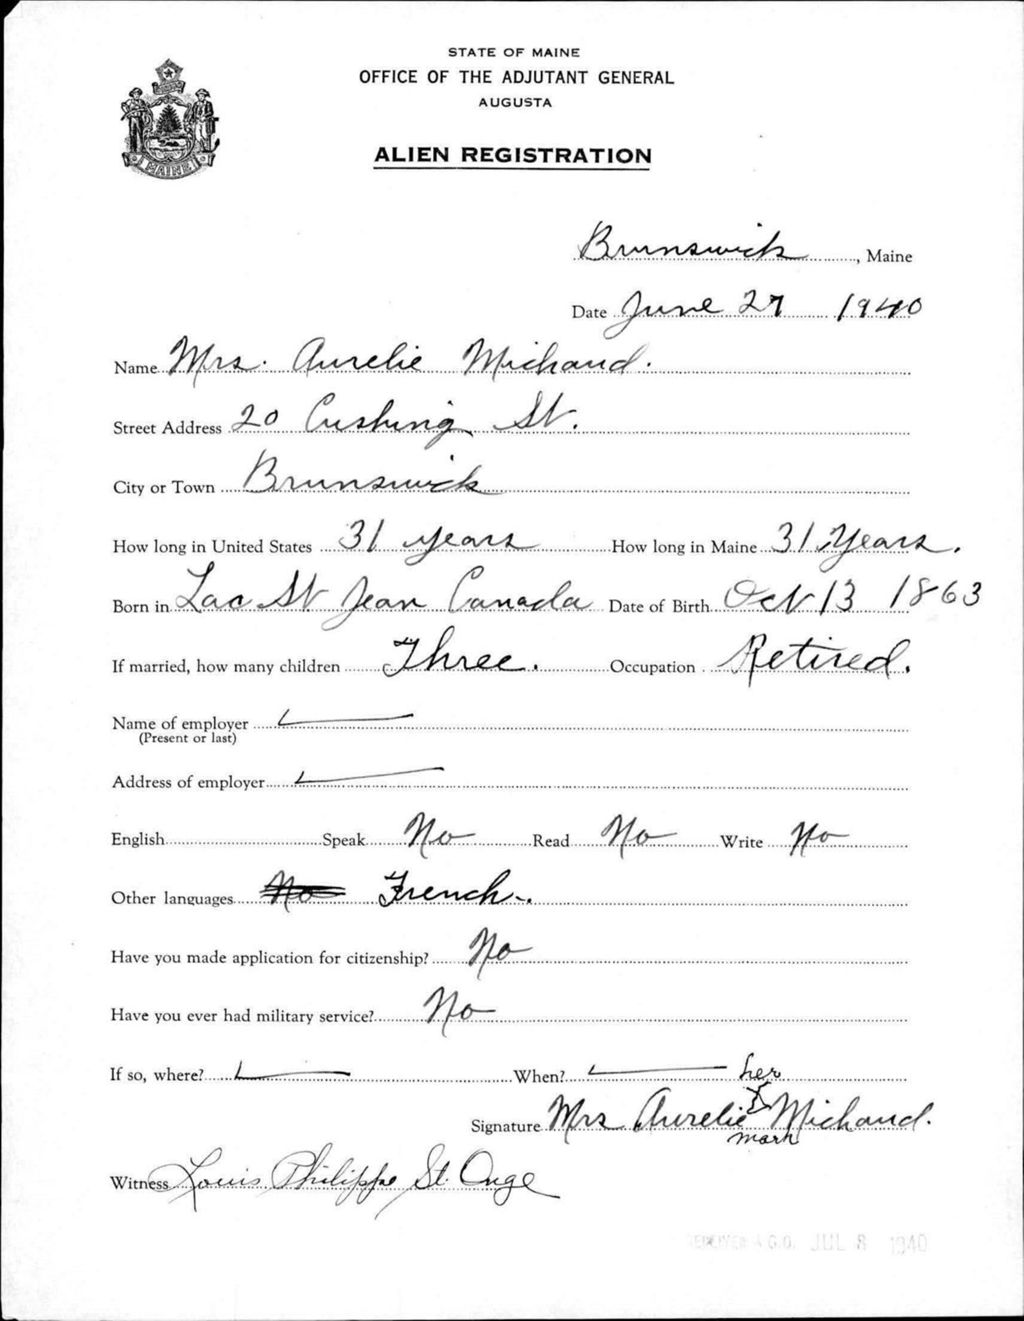 STATE OF MAINE
OFFICE OF THE ADJUTANT GENERAL
AUGUSTA
ALIEN REGISTRATION
MAINE
Brunswick, Maine
Date June 27 1940
Name Mrs. Aurelie Michaud.
Street Address 20 Cushing St.
City or Town Brunswick
How long in United States 31 years How long in Maine 31 Years.
Born in Lac St Jean Canada Date of Birth Oct 13 1863
If married, how many children Three. Occupation Retired.
Name of employer
(Present or last)
Address of employer
English Speak No Read No Write No
Other languages No French.
Have you made application for citizenship? No
Have you ever had military service? No
If so, where? When?
her
Signature Mrs Aurelie X Michaud.
mark
Witness Louis Philippe St. Onge
A.G.O. JUL 8 1940